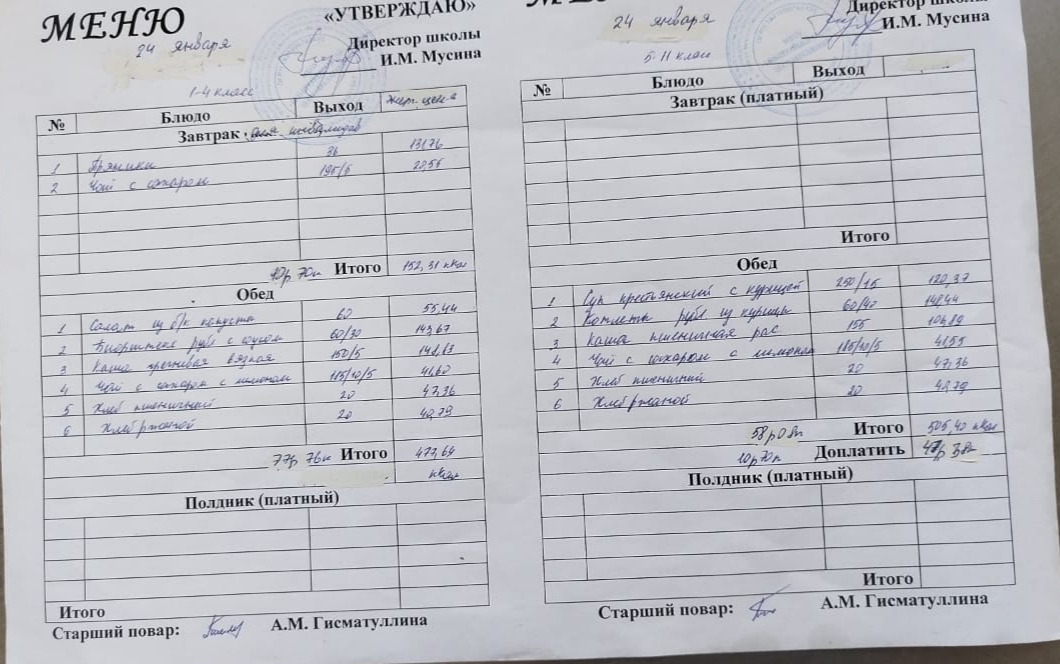 МЕНЮ
24 января
«УТВЕРЖДАЮ»
Директор школы
И.М. Мусина
1-4 класс
№ Блюдо Выход
Завтрак для инвалидов
1 Пряники 36 131,76
2 Чай с сахаром 195/5 20,55
Итого 152,31 ккал
Обед
1 Салат из б/к капусты 60 55,44
2 60/30 143,67
3 Каша гречневая вязкая 150/5
4 Чай с сахаром с лимоном 185/10/5 41,60
5 Хлеб пшеничный 20 47,36
6 Хлеб ржаной 20 40,79
77р 76к Итого 477,69
ккал
Полдник (платный)
Итого
Старший повар: А.М. Гисматуллина
24 января
Директор школы
И.М. Мусина
5-11 класс
№ Блюдо Выход
Завтрак (платный)
Итого
Обед
1 Суп крестьянский с курицей 250/15 120,37
2 Котлеты рубл из курицы 60/40
3 Каша пшеничная рас 155 104,89
4 Чай с сахаром с лимоном 185/10/5 41,55
5 Хлеб пшеничный 20 47,36
6 Хлеб ржаной 20 40,79
Итого 505,40 ккал
10р 70к Доплатить
Полдник (платный)
Итого
Старший повар: А.М. Гисматуллина